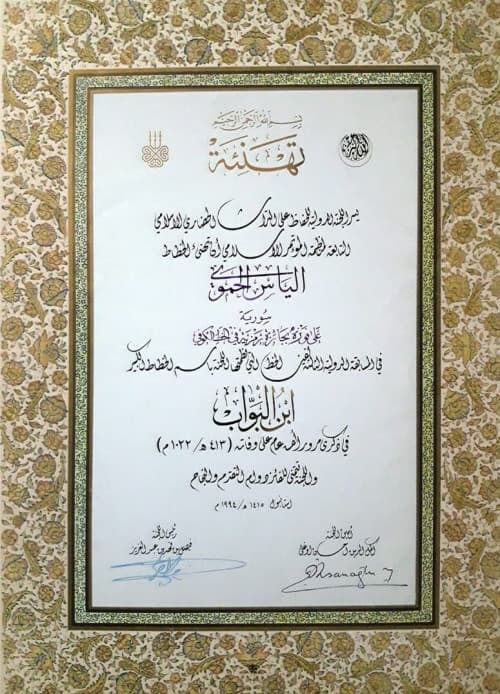 بسم الله الرحمن الرحيم
تهنئة
يسر اللجنة الدولية للحفاظ على التراث الحضاري الاسلامي
التابعة لمنظمة المؤتمر الاسلامي أن تهنئ الخطاط
الياس الحموي
سورية
على فوزه بجائزة رمزية في الخط الكوفي
في المسابقة الدولية الثالثة لفن الخط التي نظمتها اللجنة باسم الخطاط الكبير
ابن البواب
في ذكرى مرور ألف عام على وفاته (٤١٣ هـ/١٠٢٢ م)
واللجنة تتمنى للفائز دوام التقدم والنجاح
استانبول ١٤١٥ هـ/١٩٩٤ م
أمين اللجنة
رئيس اللجنة
أكمل الدين احسان اوغلى
فيصل بن فهد بن عبد العزيز